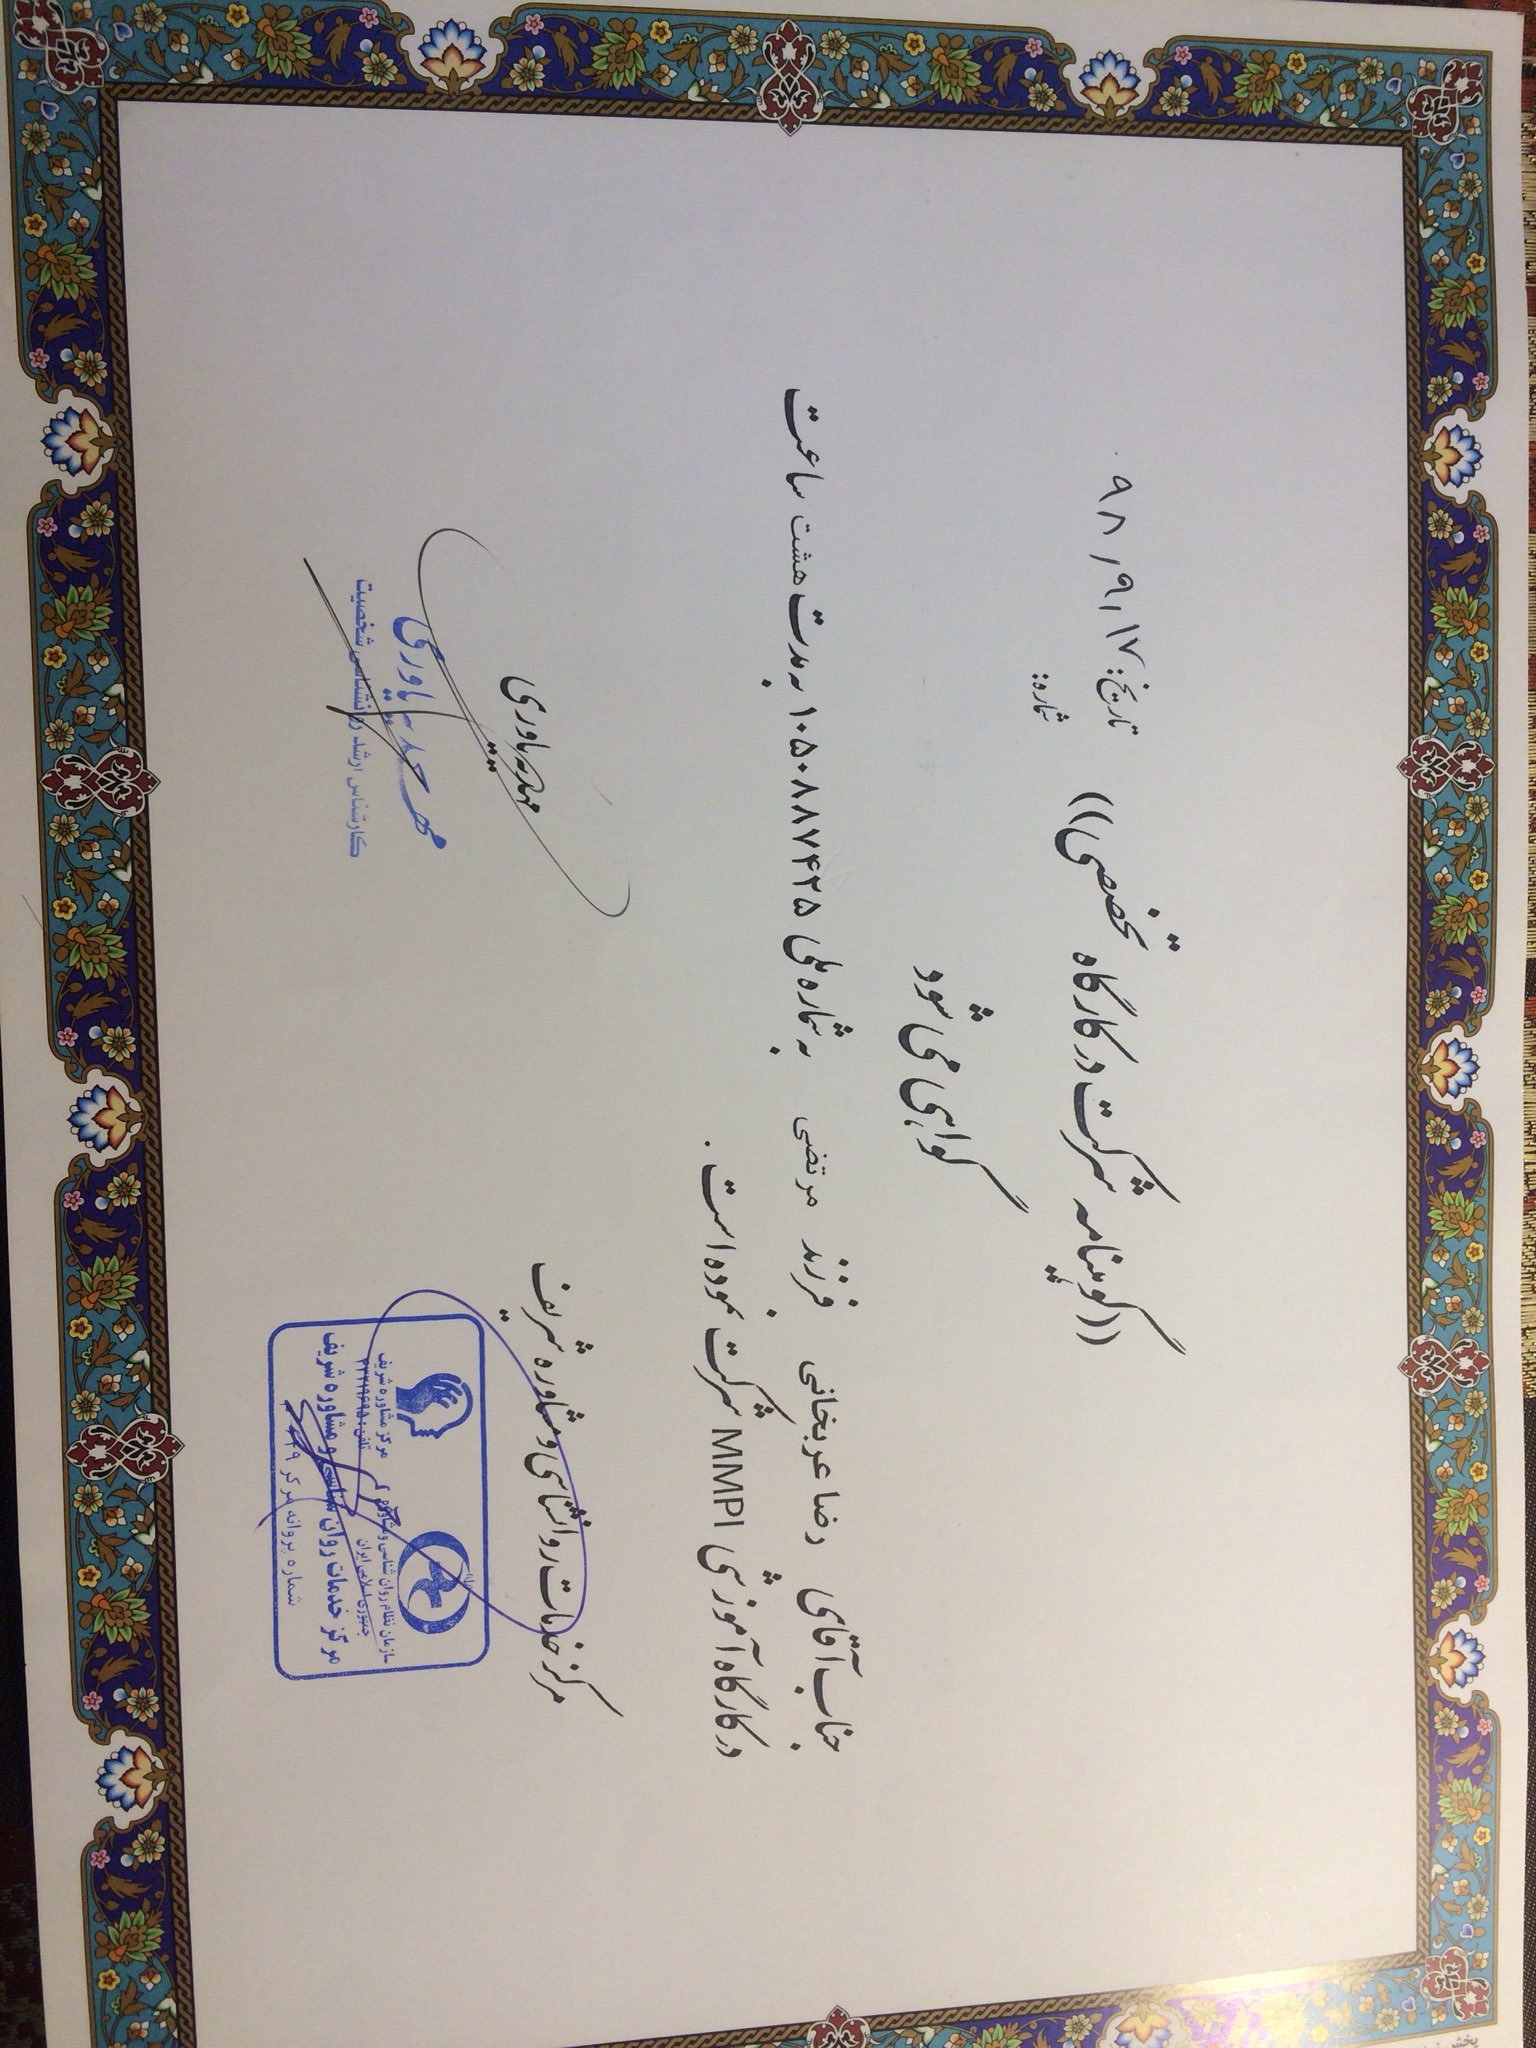 تاریخ: ۹۸/۹/۱۷
شماره:
((گواهینامه شرکت در کارگاه تخصصی))
گواهی می شود
جناب آقای رضا عربخانی فرزند مرتضی به شماره ملی ۱۰۵۰۸۸۷۴۲۵ به مدت هشت ساعت
در کارگاه آموزشی MMPI شرکت نموده است.
مرکز خدمات روانشناسی و مشاوره شریف
مهدیه یاوری
یاوری
کارشناس ارشد روانشناسی شخصیت
سازمان نظام روان شناسی و مشاوره
جمهوری اسلامی ایران
مرکز مشاوره شریف
تلفن:
مرکز خدمات روان شناسی و مشاوره شریف
شماره پروانه مرکز
پخش